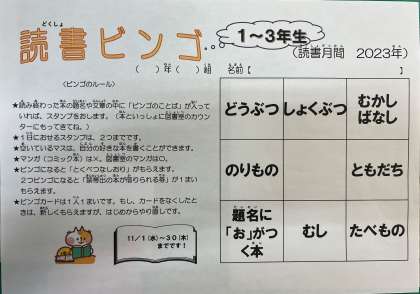 読書ビンゴ
どくしょ
1~3年生
(読書月間 2023年)
( )年( )組 名前【 】
<ビンゴのルール>
★読み終わった本の題名や文章の中に「ビンゴのことば」が入って
いれば、スタンプをおします。(本といっしょに図書室のカウン
ターにもってきてね。)
★1日におせるスタンプは、2つまでです。
★空いているマスは、自分の好きな本を書くことができます。
★マンガ(コミック本)は×。図書室のマンガは〇。
★ビンゴになると「とくべつなしおり」がもらえます。
2つビンゴになると「禁帯出の本が借りられる券」が1まい
もらえます。
★ビンゴカードは1人1まいです。もし、カードをなくしたと
きは、新しくもらえますが、はじめからやり直しです。
11/1(水)~30(木)
までです!
どうぶつ
しょくぶつ
むかし
ばなし
のりもの
ともだち
題名に
「お」がつ
く本
むし
たべもの